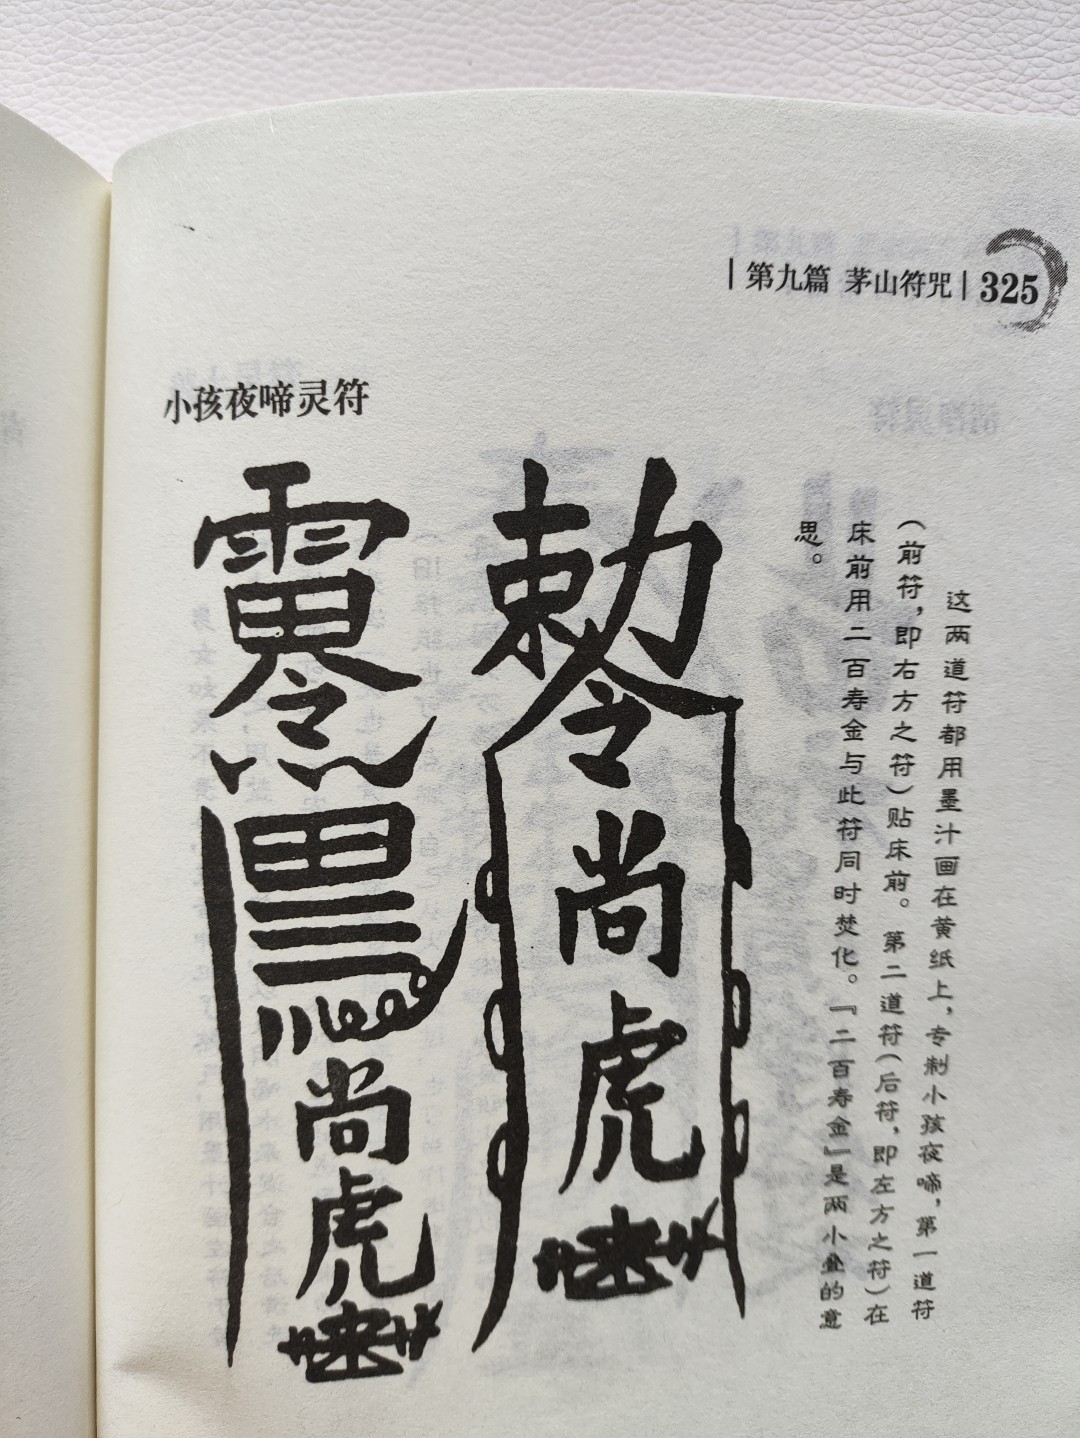 第九篇 茅山符咒 325
小孩夜啼灵符
这两道符都用墨汁画在黄纸上，专制小孩夜啼，第一道符
（前符，即右方之符）贴床前。第二道符（后符，即左方之符）在
床前用二百寿金与此符同时焚化。「二百寿金」是两小叠的意
思。
敕令
尚
虎
尚
虎